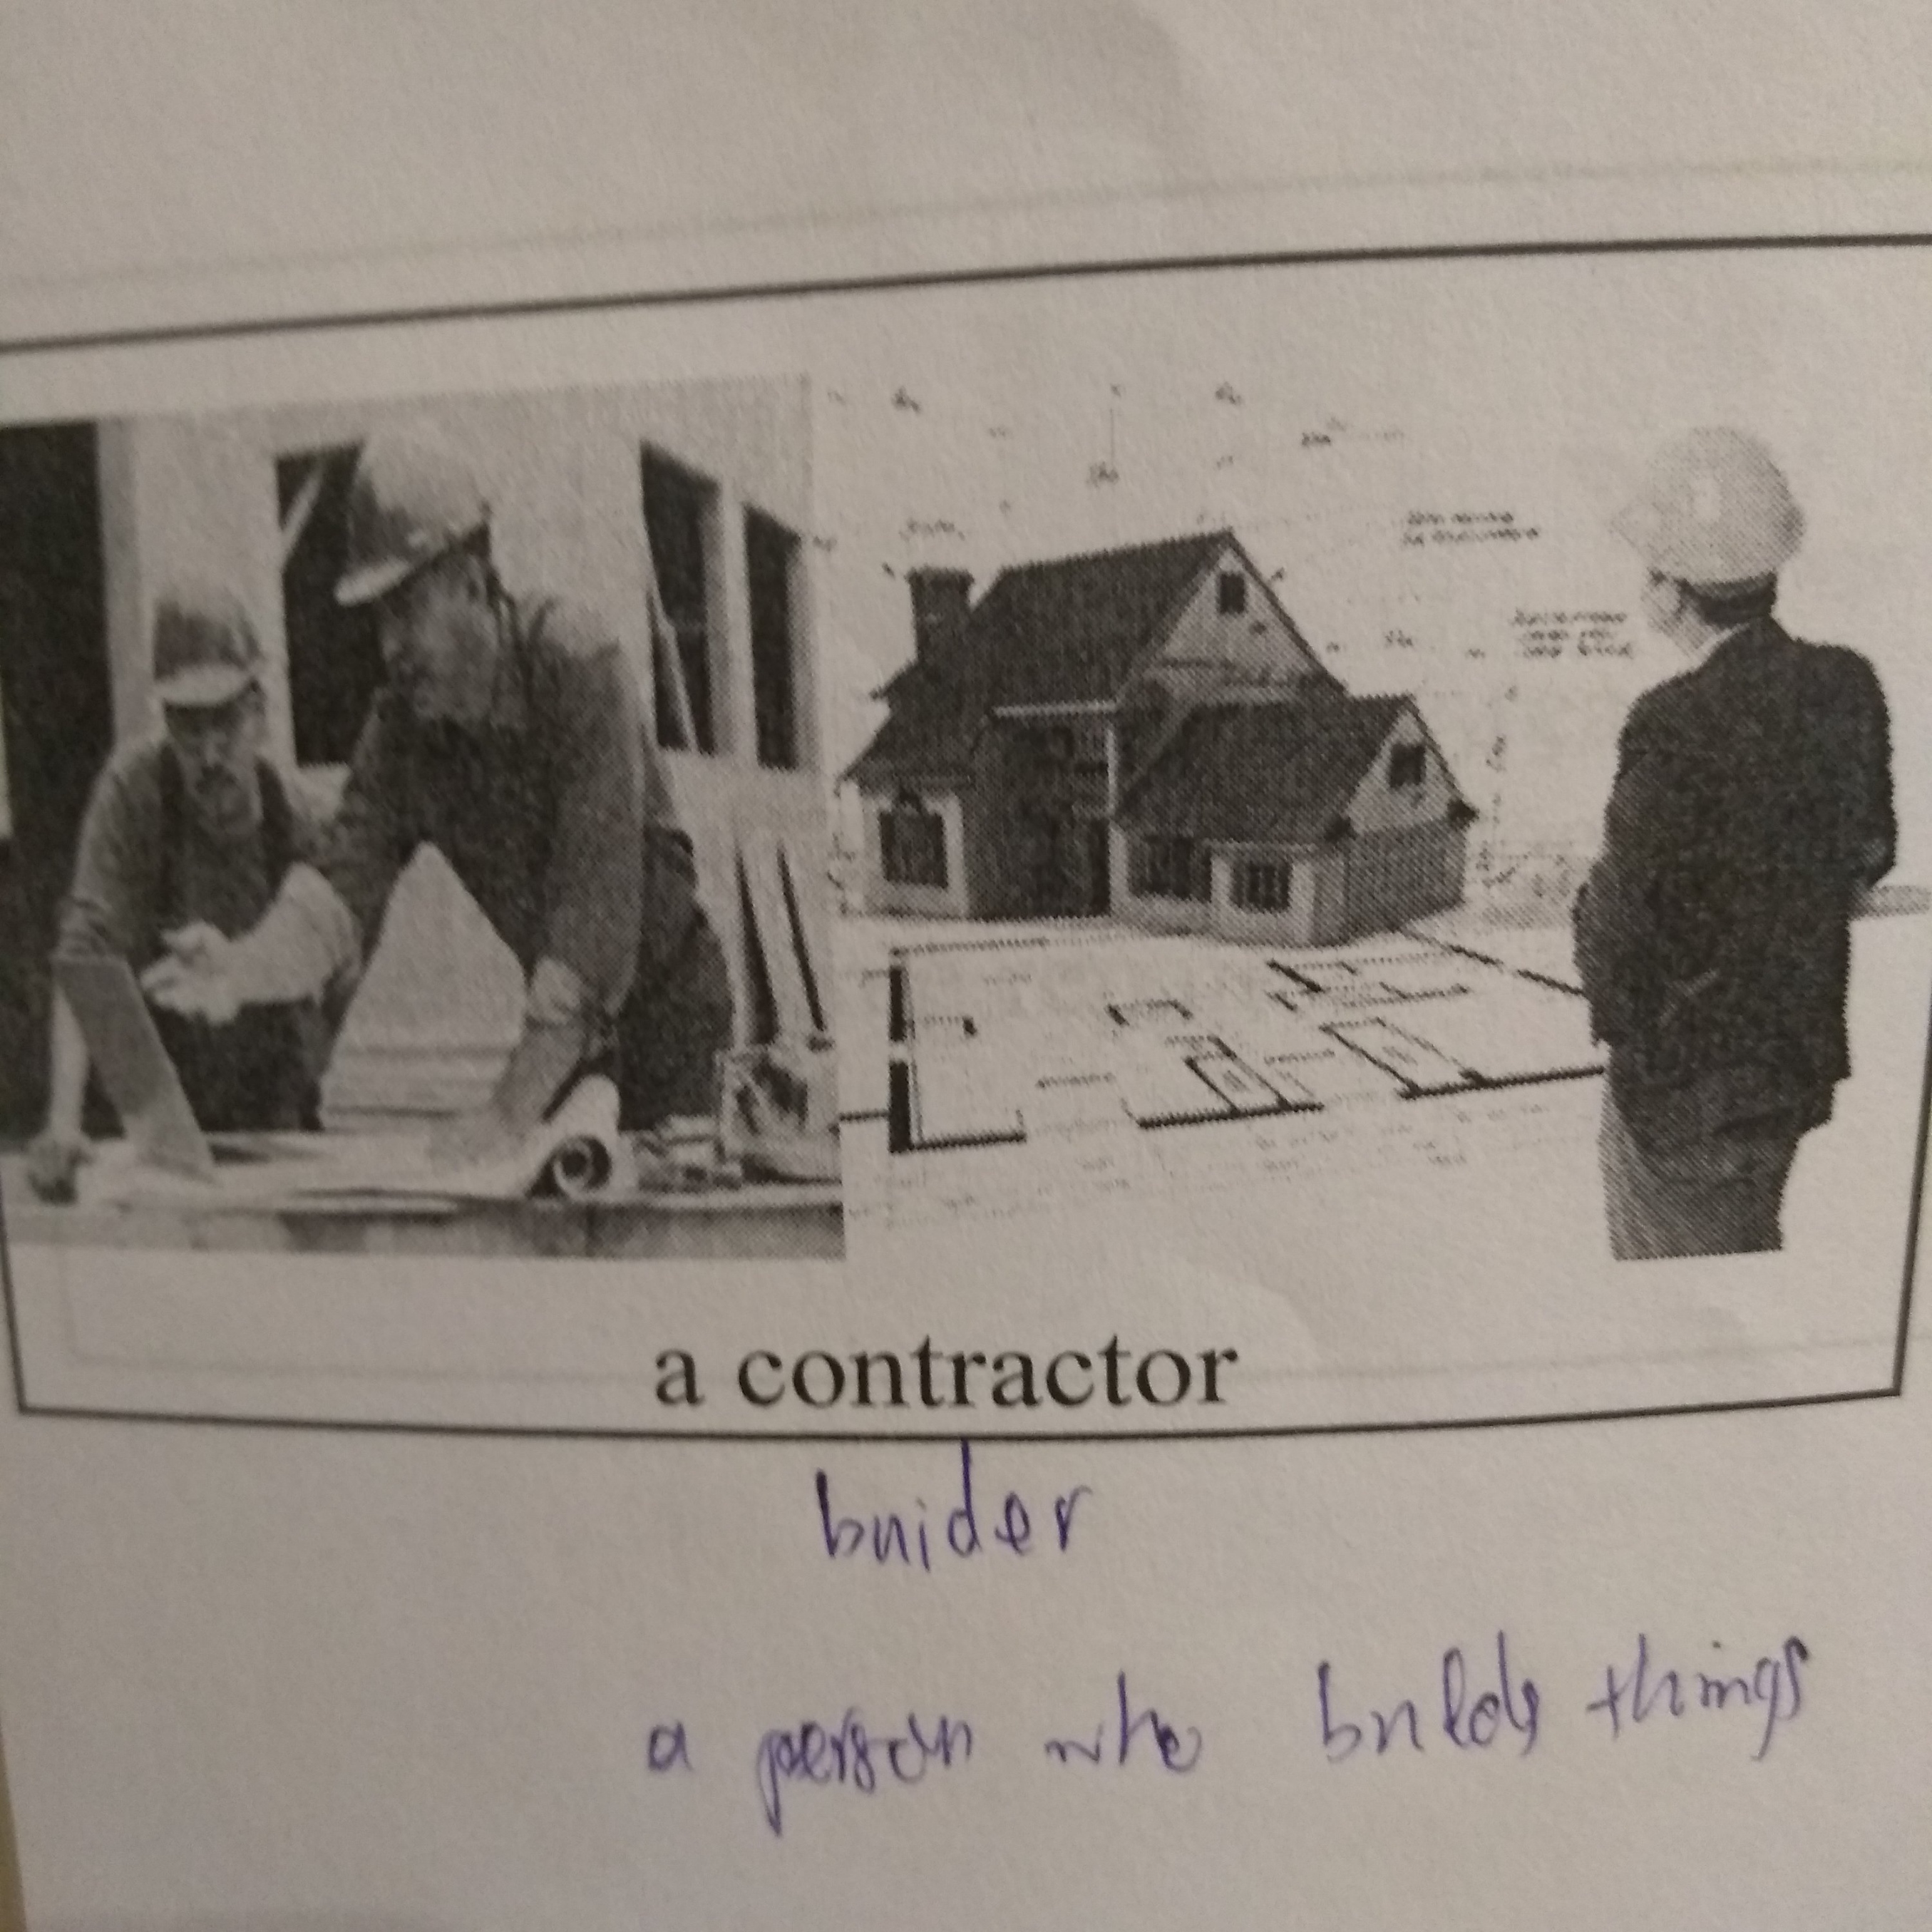 a contractor
buider
a person who builds things